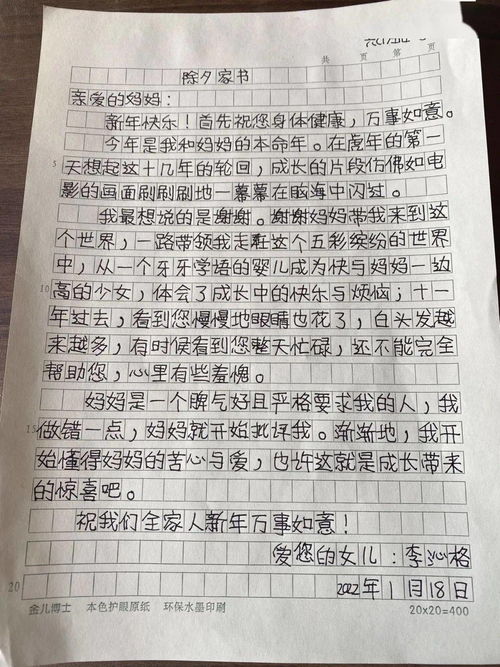 共 页 第 页
除夕家书
亲爱的妈妈：
新年快乐！首先祝您身体健康，万事如意。
今年是我和妈妈的本命年。在虎年的第一
5
天想起这十几年的轮回，成长的片段仿佛如电
影的画面刷刷刷地一幕幕在脑海中闪过。
我最想说的是谢谢。谢谢妈妈带我来到这
个世界，一路带领我走在这个五彩缤纷的世界
中，从一个牙牙学语的婴儿成为快与妈妈一边
10
高的少女，体会了成长中的快乐与烦恼；十一
年过去，看到您慢慢地眼睛也花了，白头发越
来越多，有时候看到您整天忙碌，还不能完全
帮助您，心里有些羞愧。
妈妈是一个脾气好且严格要求我的人，我
15
做错一点，妈妈就开始批评我。渐渐地，我开
始懂得妈妈的苦心与爱，也许这就是成长带来
的惊喜吧。
祝我们全家人新年万事如意！
爱您的女儿：李沁格
20
2022年1月18日
金儿博士 本色护眼原纸 环保水墨印刷 20×20=400